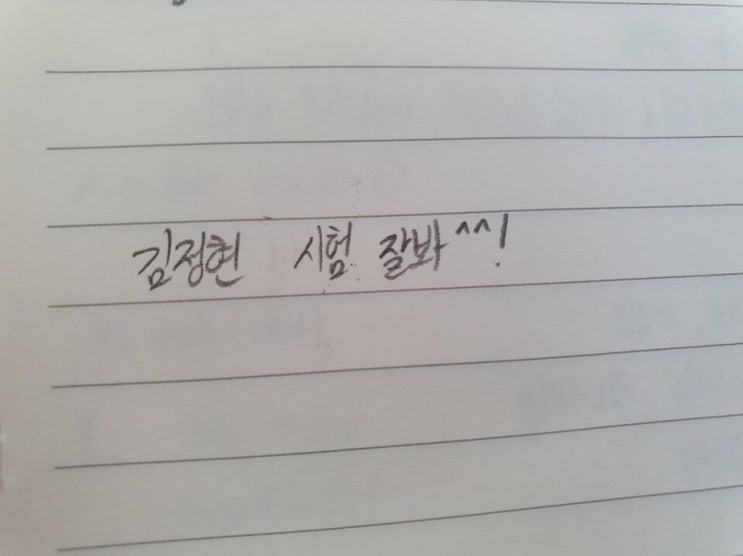 김정현 시험 잘봐^^!